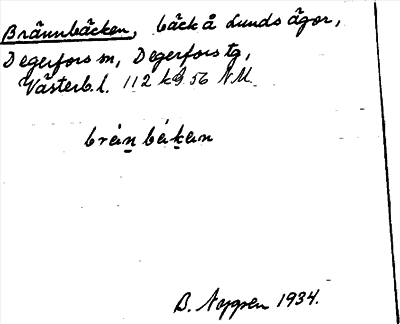 Brännbäcken, bäck å Lunds ägor,
Degerfors sn, Degerfors tg,
Västerb. l. 112 kg 56 NM.
brän bäkan
B. Nygren 1934.